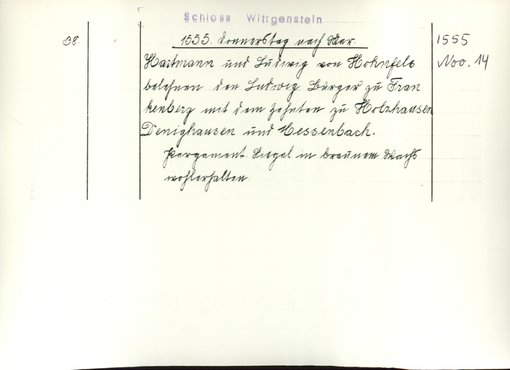 Schloss Wittgenstein
38
1555. Donnerstag nach Mar.
1555
Nov. 14
Hartmann und Ludwig von Hohnfels
belehnen den Ludwig Bürger zu Fran
kenberg mit dem Zehnten zu Holzhausen
Denighausen und Hessenbach.
Pergament. Siegel in braunem Wachs
wohlerhalten